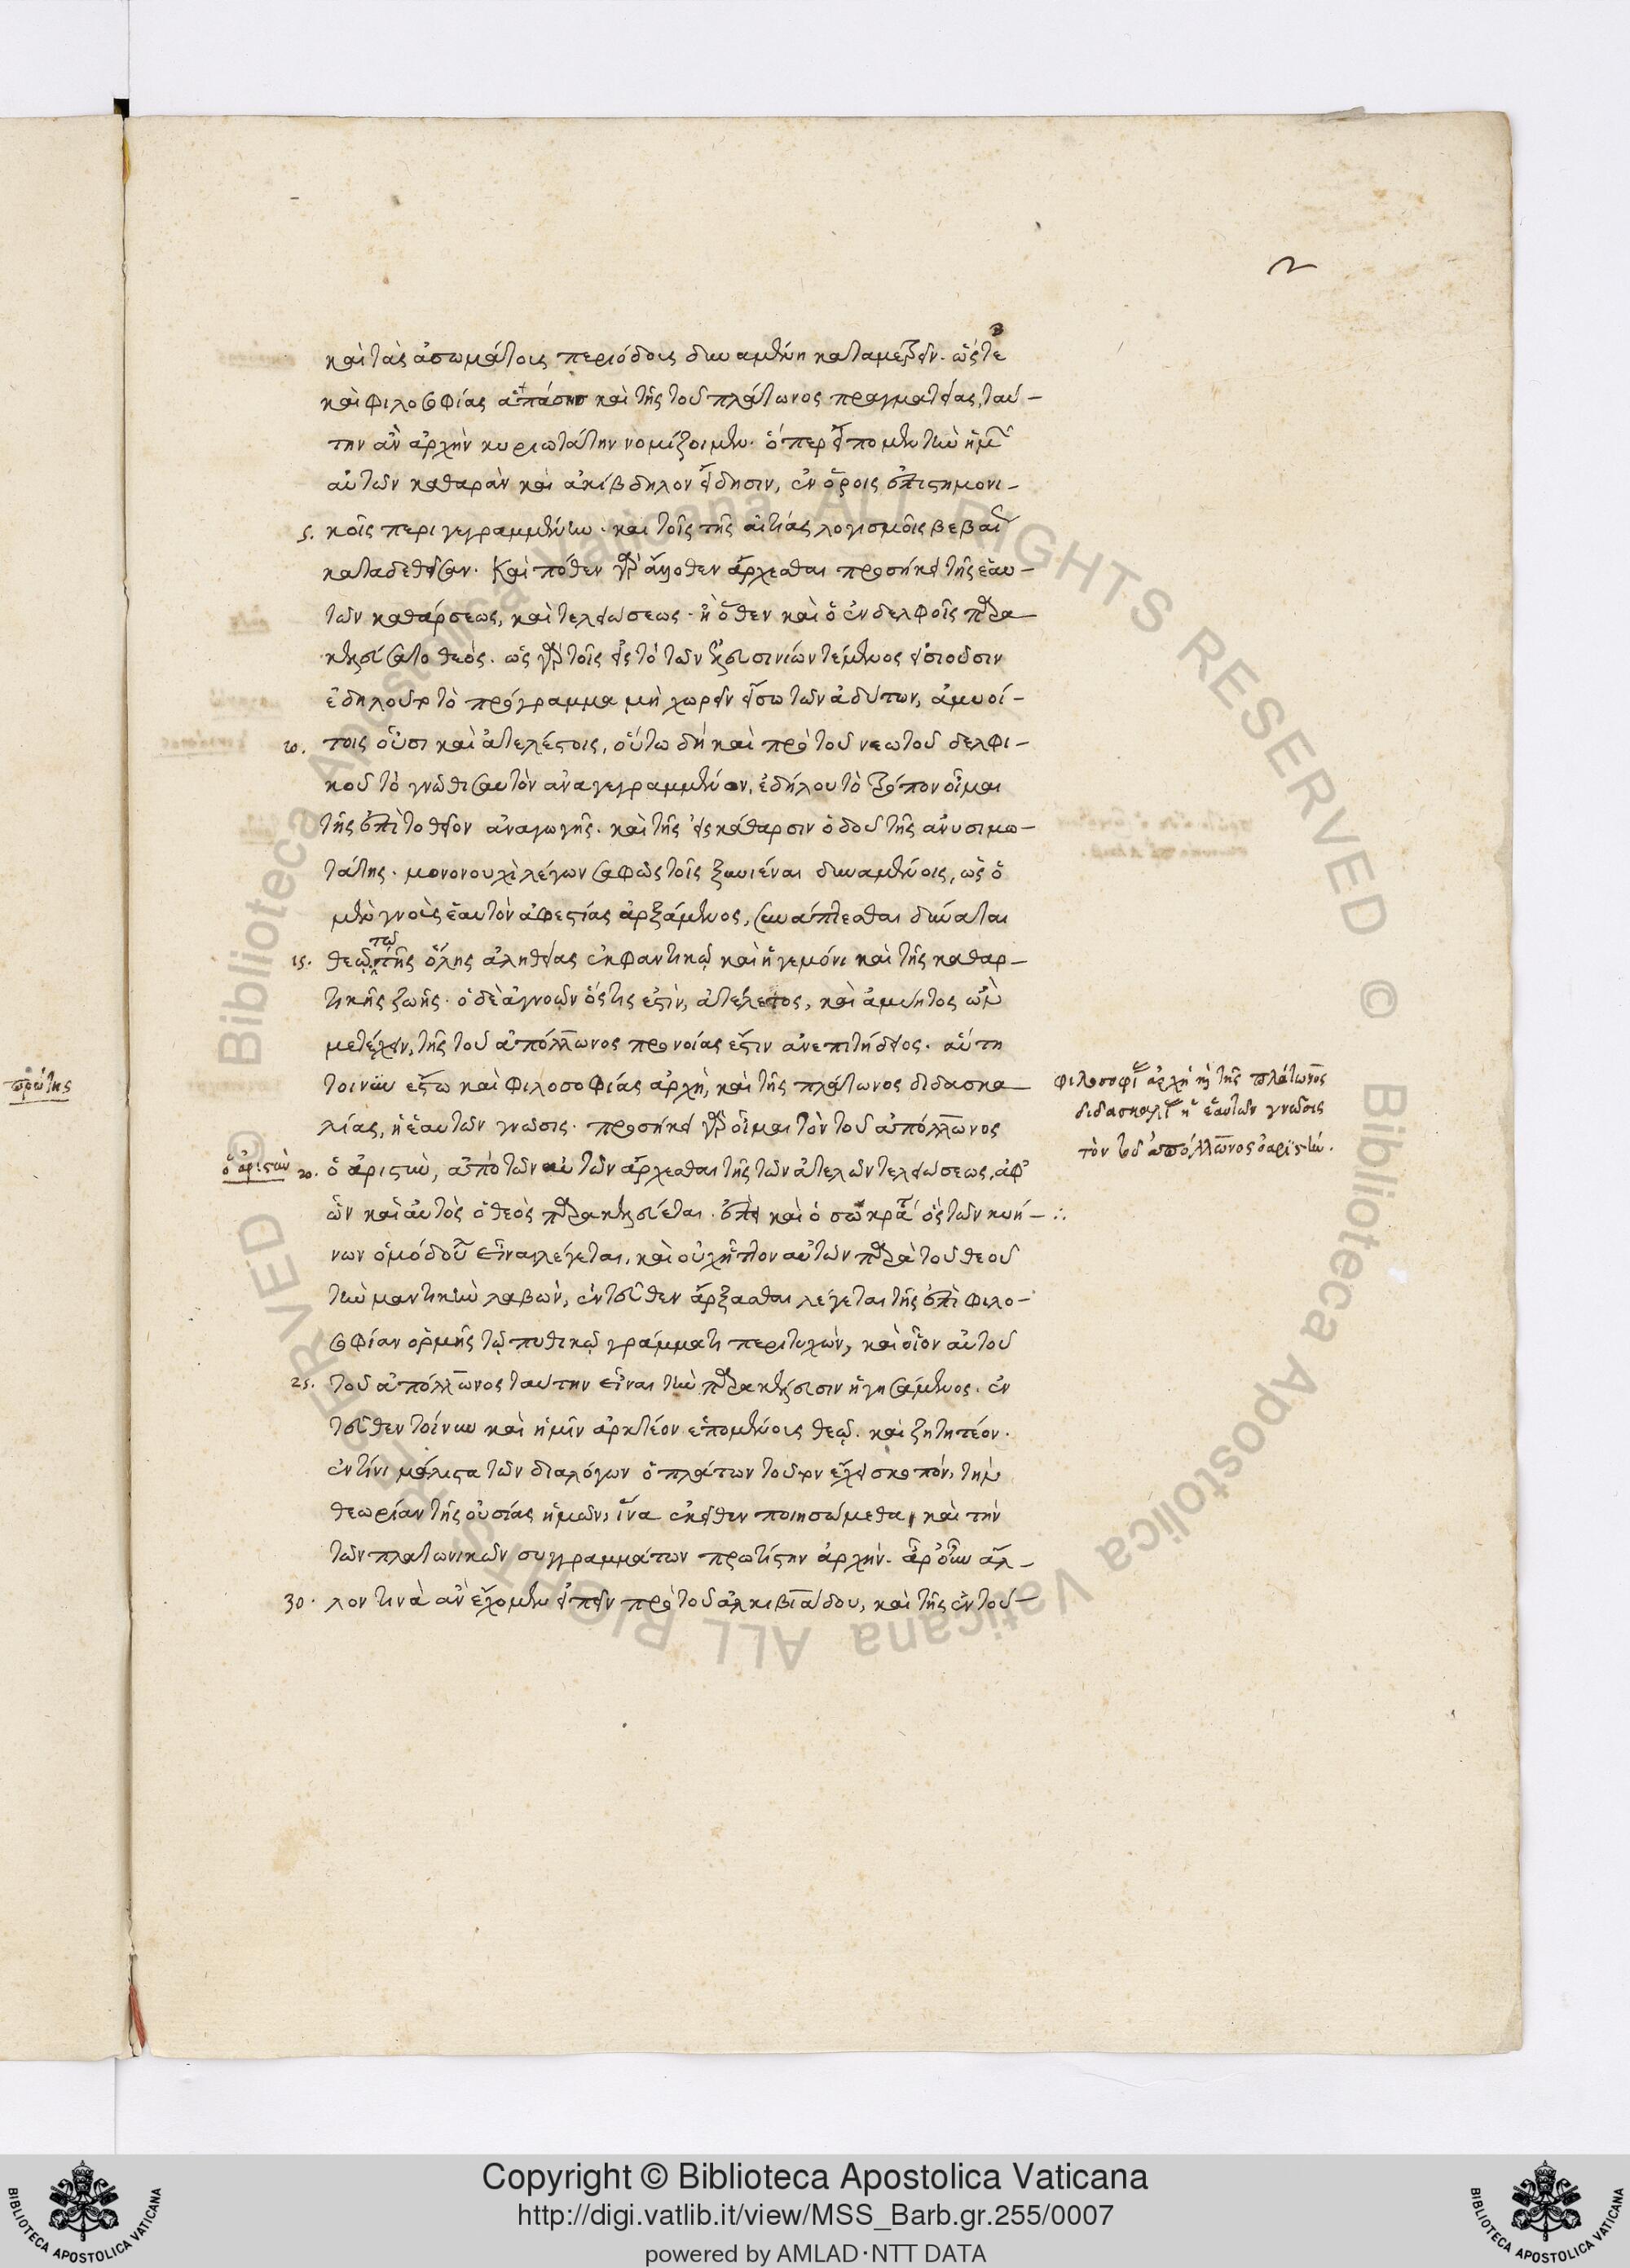 2
καὶ τὰς ἀσωμάτοις περιόδοις δυναμένη καταμετρεῖν. ὥστε
καὶ φιλοσοφίας ἁπάσης καὶ τῆς τοῦ πλάτωνος πραγματείας, ταύ-
την ἂν ἀρχὴν κυριωτάτην νομίζοιμεν. ὅπερ εἴπομεν τὴν ἡμῶν
αὐτῶν καθαρὰν καὶ ἀκίβδηλον εἴδησιν, ἐν ὅροις ἐπιστημονι-
5. κοῖς περιγεγραμμένην. καὶ τοῖς τῆς αἰτίας λογισμοῖς βεβαίως
καταδεθεῖσαν. Καὶ πόθεν γὰρ ἄλλοθεν ἄρχεσθαι προσήκει τῆς ἑαυ-
τῶν καθάρσεως, καὶ τελειώσεως. ἢ ὅθεν καὶ ὁ ἐν δελφοῖς παρα-
κελεύσατο θεός. ὡς γὰρ τοῖς εἰς τὸ τῶν ἐλευσινίων τέμενος εἰσιοῦσιν
ἐδηλοῦτο τὸ πρόγραμμα μὴ χωρεῖν εἴσω τῶν ἀδύτων, ἀμυοί-
10. τοις οὖσι καὶ ἀτελέστοις, οὕτω δὴ καὶ πρὸ τοῦ νεὼ τοῦ δελφι-
κοῦ τὸ γνῶθι σαυτὸν ἀναγεγραμμένον, ἐδήλου τὸ τρόπον οἶμαι
τῆς ἐπὶ τὸ θεῖον ἀναγωγῆς. καὶ τῆς εἰς κάθαρσιν ὁδοῦ τῆς ἀνυσιμω-
τάτης. μονονουχὶ λέγων σαφῶς τοῖς ξυνιέναι δυναμένοις, ὡς ὁ
μὲν γνοὺς ἑαυτὸν ἀφεστίας ἀρξάμενος, συνάπτεσθαι δύναται
τῷ
15. θεῷ, τῆς ὅλης ἀληθείας ἐκφαντικῷ καὶ ἡγεμόνι καὶ τῆς καθαρ-
τικῆς ζωῆς. ὁ δὲ ἀγνοῶν ὅστις ἐστὶν, ἀτέλεστος, καὶ ἀμύητος ὢν
μετέχειν, τῆς τοῦ ἀπόλλωνος προνοίας ἐστὶν ἀνεπιτήδειος. αὕτη
τοίνυν ἔστω καὶ φιλοσοφίας ἀρχὴ, καὶ τῆς πλάτωνος διδασκα-
λίας, ἡ ἑαυτῶν γνῶσις. προσήκει γὰρ οἶμαι τὸν τοῦ ἀπόλλωνος
20. ὀαριστὴν, ἀπὸ τῶν αὐτῶν ἄρχεσθαι τῆς τῶν ἀτελῶν τελειώσεως, ἀφ'
ὧν καὶ αὐτὸς ὁ θεὸς παρακελεύεται. ἐπεὶ καὶ ὁ σωκράτης ὁ τῶν κυκ-
νων ὁμόδουλος εἶναι λέγεται, καὶ οὐχ ἧττον αὐτῶν παρὰ τοῦ θεοῦ
τὴν μαντικὴν λαβὼν, ἐντεῦθεν ἄρξασθαι λέγεται τῆς ἐπὶ φιλο-
σοφίαν ὁρμῆς τῷ πυθικῷ γράμματι περιτυχὼν, καὶ οἷον αὐτοῦ
25. τοῦ ἀπόλλωνος ταύτην εἶναι τὴν παρακέλευσιν ἡγησάμενος. ἐν
τεῦθεν τοίνυν καὶ ἡμῖν ἀρκτέον ἑπομένοις θεῷ. καὶ ζητητέον.
ἐν τίνι μάλιστα τῶν διαλόγων ὁ πλάτων τοῦτον ἔχει σκοπὸν, τὴν
θεωρίαν τῆς οὐσίας ἡμῶν, ἵνα ἐκεῖθεν ποιησώμεθα, καὶ τὴν
τῶν πλατωνικῶν συγγραμμάτων πρωτίστην ἀρχήν. ἆρ' οὖν ἄλ-
30. λον τινὰ ἂν ἔχομεν εἰπεῖν πρὸ τοῦ ἀλκιβιάδου, καὶ τῆς ἐν τού-
πρώτης
ὀαριστὴν
φιλοσοφίας ἀρχή καὶ τῆς πλάτωνος
διδασκαλίας ἡ ἑαυτῶν γνῶσις
τὸν τοῦ ἀπόλλωνος ὀαριστὴν.
Copyright © Biblioteca Apostolica Vaticana
http://digi.vatlib.it/view/MSS_Barb.gr.255/0007
powered by AMLAD·NTT DATA
BIBLIOTECA APOSTOLICA VATICANA
BIBLIOTECA APOSTOLICA VATICANA
© Biblioteca Apostolica Vaticana ALL RIGHTS RESERVED © Biblioteca Apostolica Vaticana ALL RIGHTS RESERVED